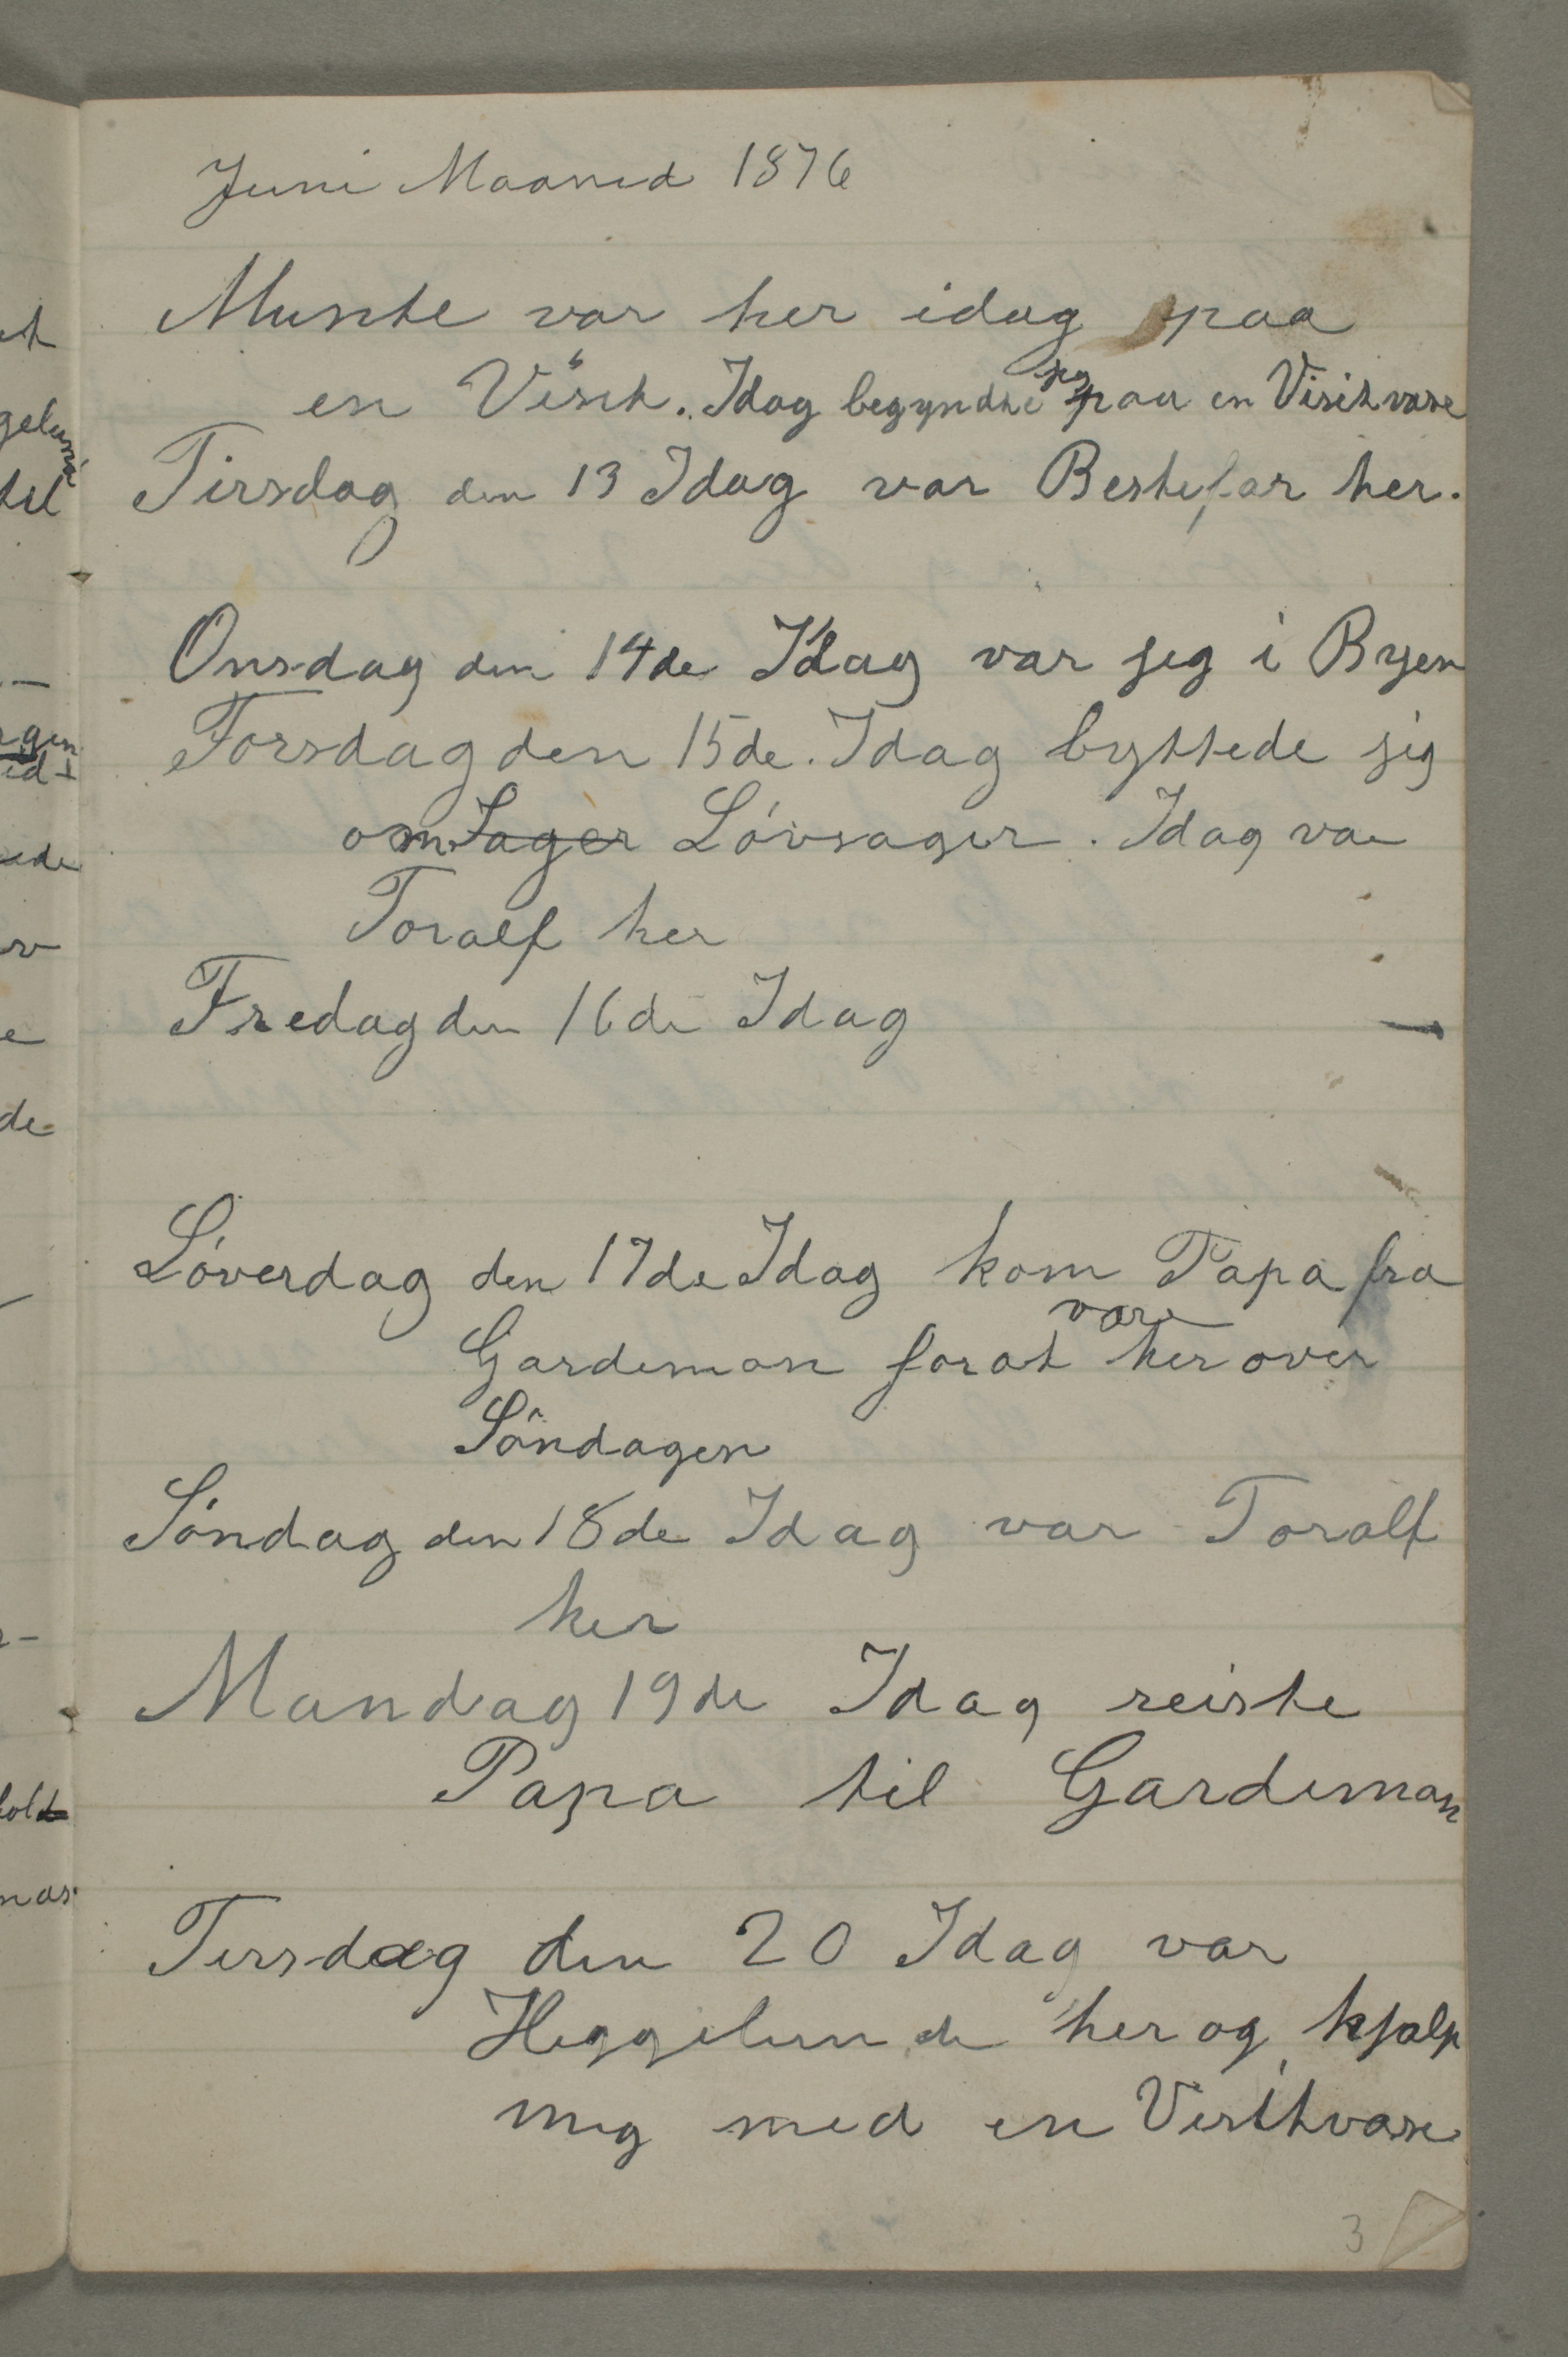 Juni Maaned 1876
Munthe var her idag paa
en Visit. Idag begyndte jeg paa en Visitvase
Tirsdag den 13 Idag var Bestefar her.
Onsdag den 14de Idag var jeg i Byen
Torsdag den 15de. Idag byttede jeg
om Sager Lóvsager. Idag var
Toralf her
Fredag den 16de Idag
Lóverdag den 17de Idag kom Papa fra
Gardemon forat være her over
Söndagen
Söndag den 18de Idag var Toralf
her
Mandag 19de Idag reiste
Papa til Gardemon
Tirsdag den 20 Idag var
Heggelund her og hjalp
mig med en Visitvase
3